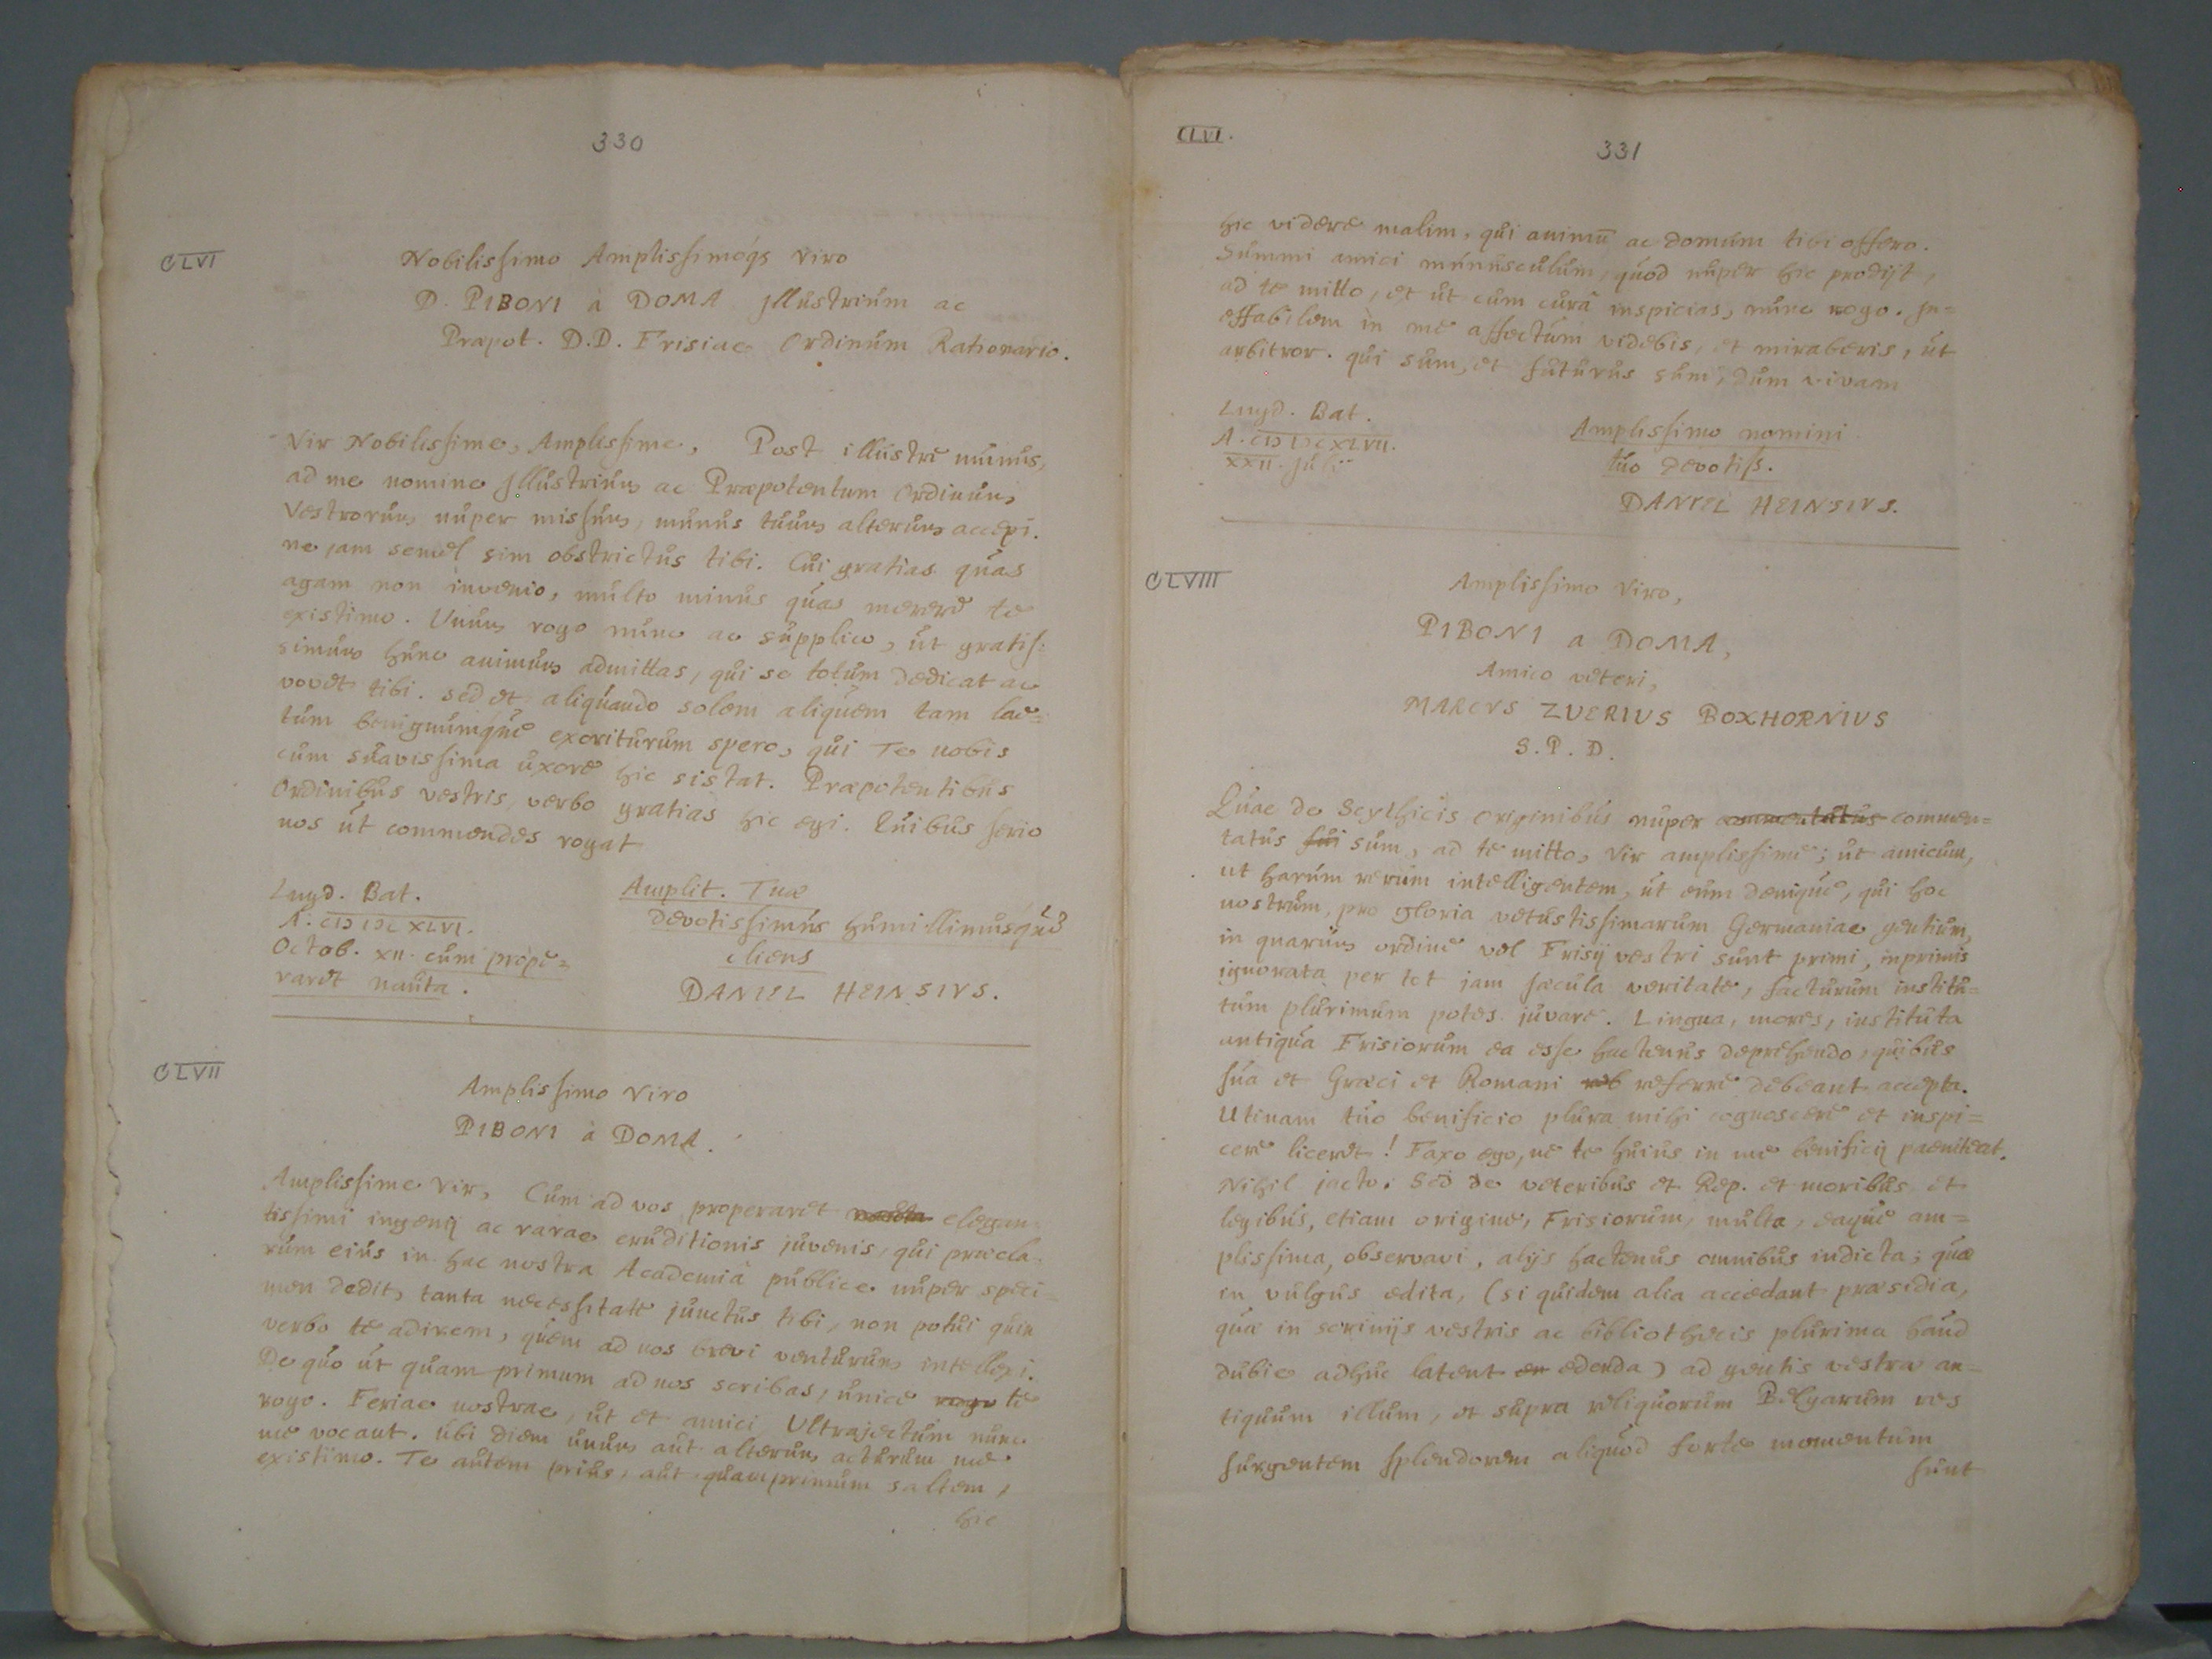 330
CLVI
Nobilissimo Amplissimóqs Viro
D. PIBONI à DOMA Illustrium ac
Præpot. D.D. Frisiae Ordinum Rationario.
Vir Nobilissime, Amplissime, Post illustre munus,
ad me nomine Illustrium ac Præpotentum Ordinum
Vestrorum nuper missum, munus tuum alterum accepi.
ne jam semel sim obstrictus tibi. Cui gratias quas
agam non invenio, multo minus quas merere te
existimo. Unum rogo nunc ac supplico, ut gratis-
simum hunc animum admittas, qui se totum dedicat ac
vovet tibi. sed et aliquando solem aliquem tam lae=
tum benignumque exoriturum spero, qui Te nobis
cum suavissima uxore hic sistat. Præpotentibus
Ordinibus vestris, verbo gratias hic egi. Quibus serio
nos ut commendes rogat
Lugd. Bat.
A. CIƆ IƆC XLVI.
Octob. XII. cum prope=
raret nauta.
Amplit. Tuæ
devotissimus humillimusque
cliens
DANIEL HEINSIVS.
CLVII
Amplissimo Viro
PIBONI à DOMA.
Amplissime Vir, Cum ad vos properaret nauta elegan-
tissimi ingenij ac rarae eruditionis juvenis, qui præcla-
rum eius in hac nostra Academiâ publice nuper speci=
men dedit, tanta necessitate junctus tibi, non potui quin
verbo te adirem, quem ad nos brevi venturum intellexi.
De quo ut quam primum ad nos scribas, unice rogo te
rogo. Feriae nostrae, ut et amici Ultrajectum nunc
me vocant. ubi diem unum aut alterum acturum me
existimo. Te autem prius, aut quamprimum saltem,
hic
CLVI.
331
hic videre malim, qui animū ac domum tibi offero.
Summi amici munusculum, quod nuper hic prodijt,
ad te mitto, et ut cum curâ inspicias, nunc rogo. In=
effabilem in me affectum videbis, et miraberis, ut
arbitror. qui sum, et futurus sum, dum vivam
Lugd. Bat.
A. CIƆ IƆC XLVII.
XXII. Julii
Amplissimo nomini
tuo devotiss.
DANIEL HEINSIVS.
CLVIII
Amplissimo Viro,
PIBONI a DOMA,
Amico veteri,
MARCVS ZVERIUS BOXHORNIVS
S. P. D.
Quae de Scythicis Originibus nuper commentatus commen=
tatus fui sum, ad te mitto, Vir amplissime; ut amicum,
ut harum rerum intelligentem, ut eum denique, qui hoc
nostrum, pro gloria vetustissimarum Germaniae gentium,
in quarum ordine vel Frisij vestri sunt primi, inprimis
ignorata per tot jam sæcula veritate, facturum institu=
tum plurimum potes juvare. Lingua, mores, instituta
antiqua Frisiorum ea esse hactenus deprehendo, quibus
sua et Græci et Romani reb referre debeant accepta.
Utinam tuo benificio plura mihi cognoscere et inspi=
cere liceret! Faxo ego, ne te huius in me benificij paeniteat.
Nihil jacto. Sed de veteribus et Rep. et moribus et
legibus, etiam origine, Frisiorum, multa, eaque am=
plissima, observavi, alijs hactenus omnibus indicta; quæ
in vulgus edita, (si quidem alia accedant præsidia,
quæ in scrinijs vestris ac bibliothecis plurima haud
dubie adhuc latent en edenda) ad gentis vestræ an=
tiquum illum, et supra reliquorum Belgarum res
surgentem splendorem aliquod forte momentum
sunt